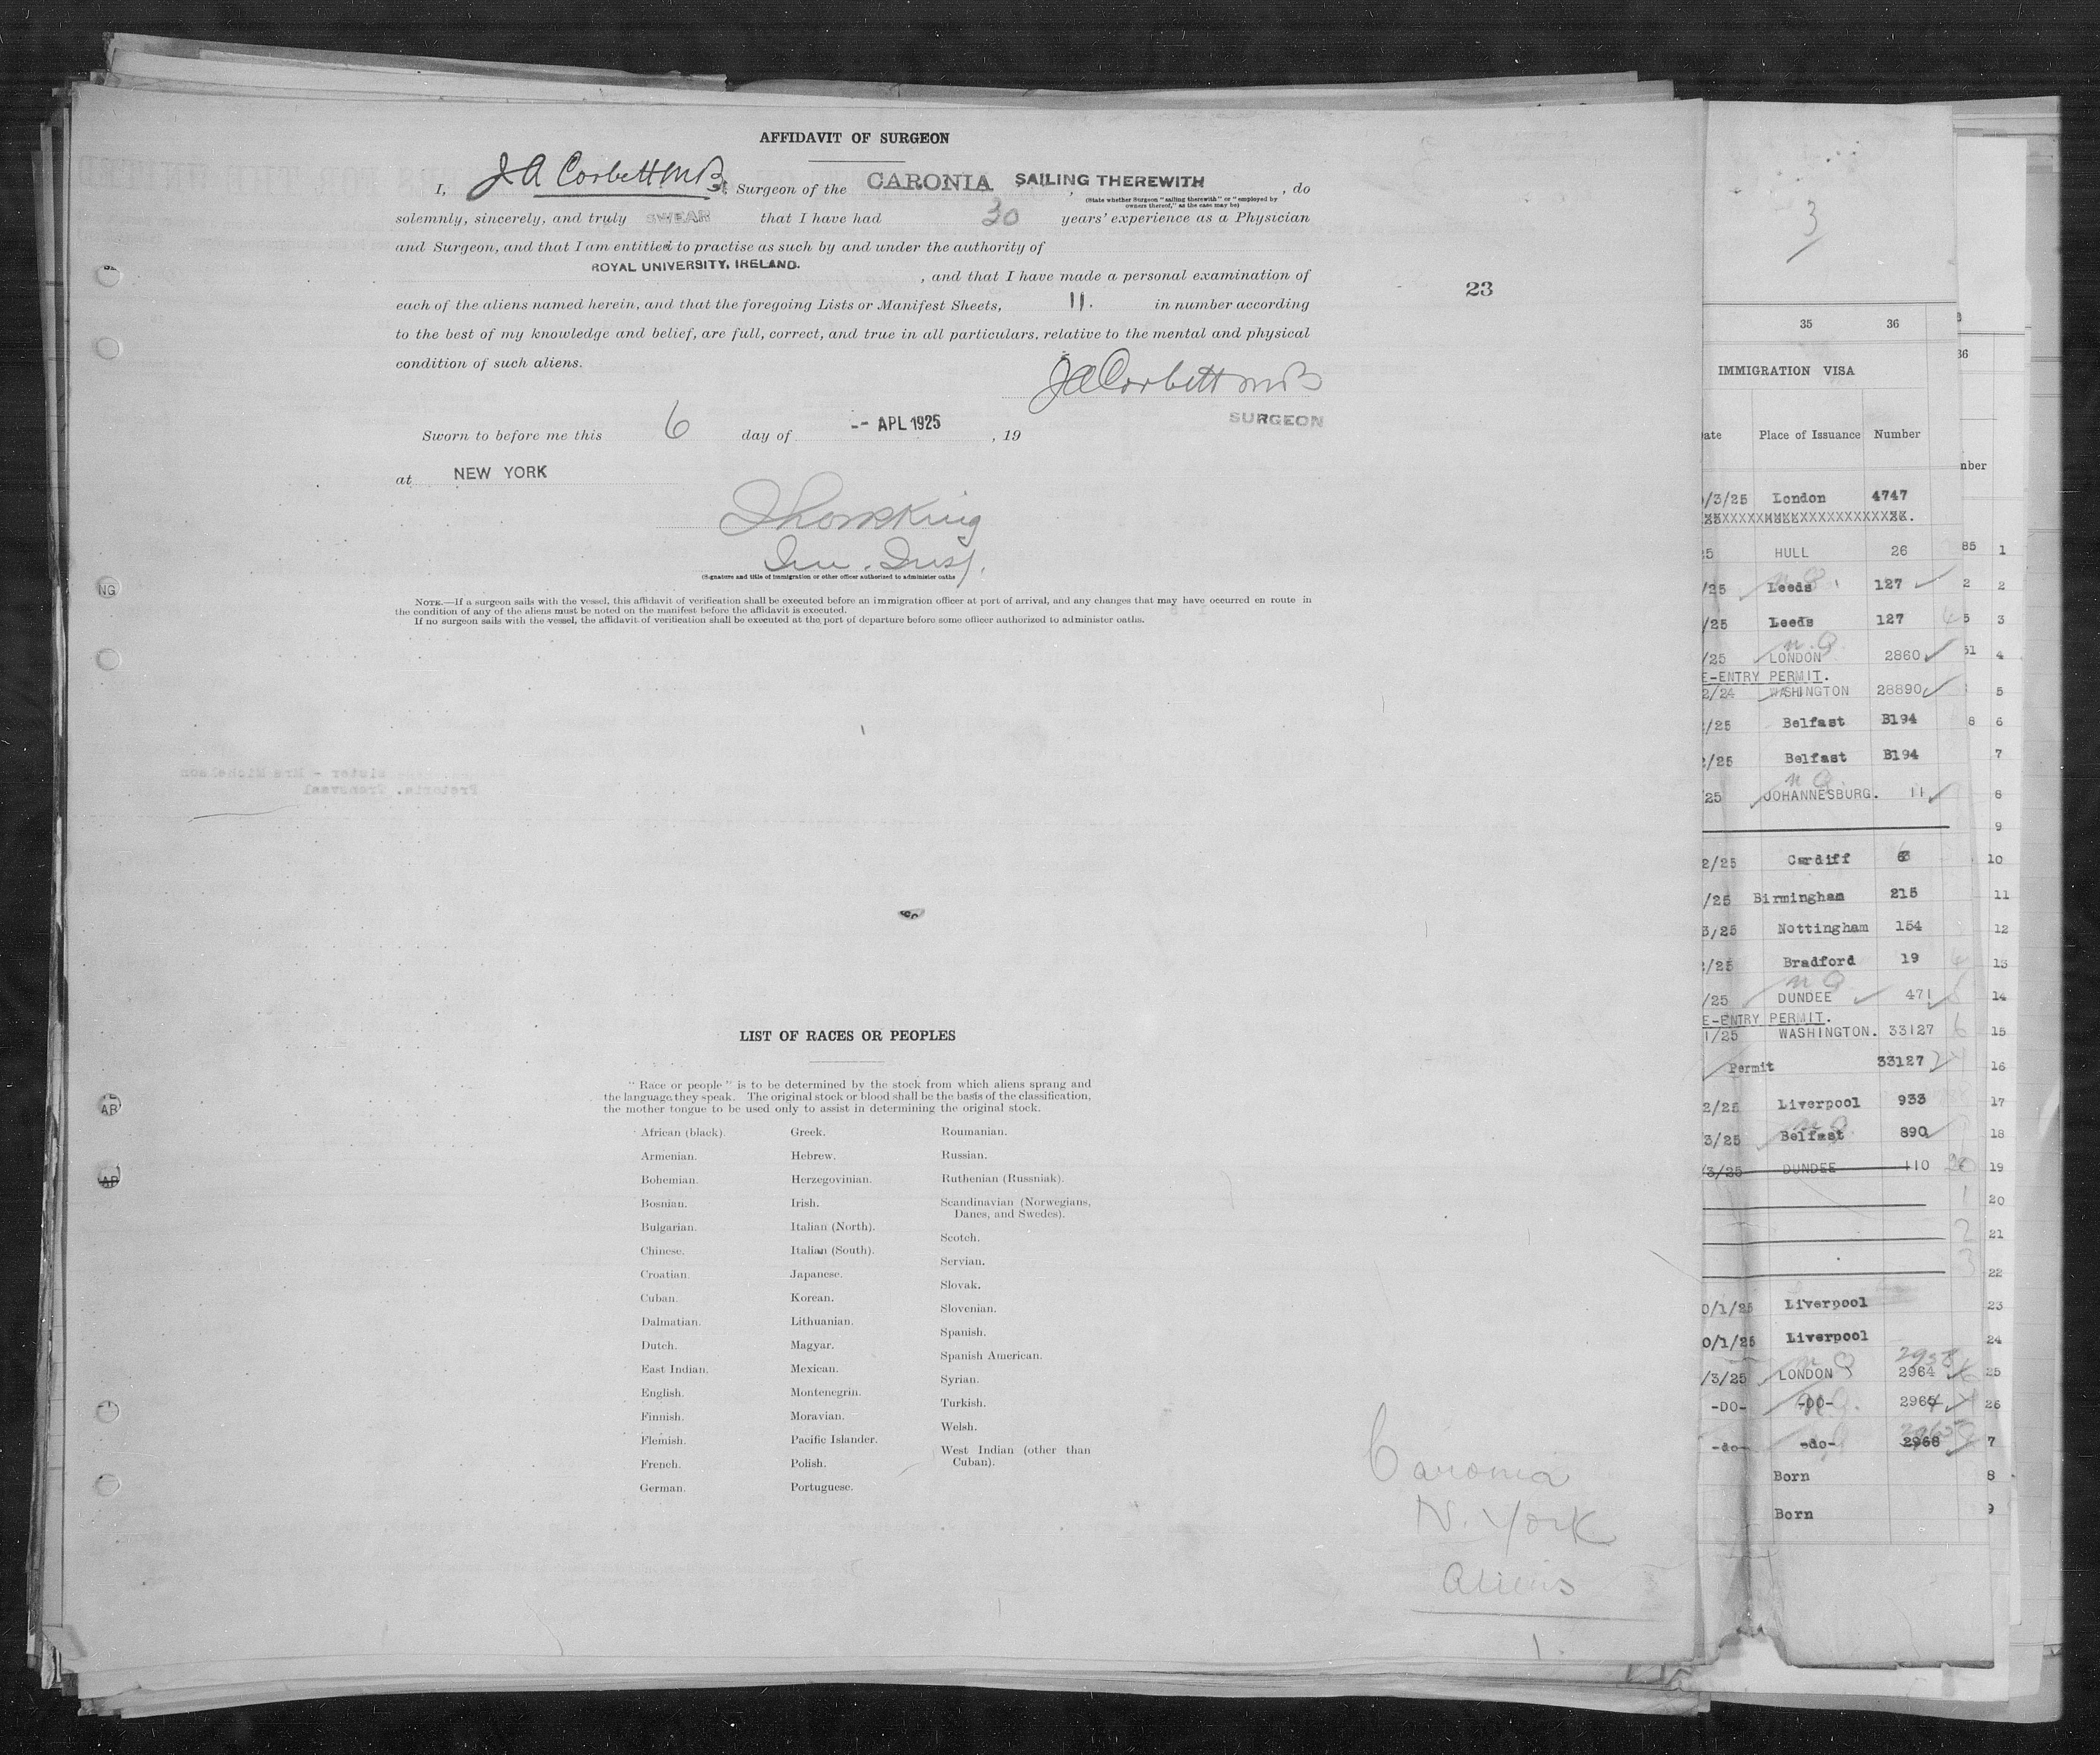 AFFIDAVIT OF SURGEON
I, J A Corbett M B, Surgeon of the CARONIA SAILING THEREWITH, do
(State whether Surgeon "sailing therewith" or "employed by
owners thereof," as the case may be)
solemnly, sincerely, and truly SWEAR that I have had 30 years' experience as a Physician
and Surgeon, and that I am entitled to practise as such by and under the authority of
ROYAL UNIVERSITY, IRELAND.
, and that I have made a personal examination of
each of the aliens named herein, and that the foregoing Lists or Manifest Sheets, 11. in number according
to the best of my knowledge and belief, are full, correct, and true in all particulars, relative to the mental and physical
condition of such aliens.
J A Corbett M B
SURGEON
Sworn to before me this 6 day of -- APL 1925, 19
at NEW YORK
(Signature and title of immigration or other officer authorized to administer oaths
NOTE.—If a surgeon sails with the vessel, this affidavit of verification shall be executed before an immigration officer at port of arrival, and any changes that may have occurred en route in
the condition of any of the aliens must be noted on the manifest before the affidavit is executed.
If no surgeon sails with the vessel, the affidavit of verification shall be executed at the port of departure before some officer authorized to administer oaths.
23
LIST OF RACES OR PEOPLES
"Race or people" is to be determined by the stock from which aliens sprang and
the language they speak. The original stock or blood shall be the basis of the classification,
the mother tongue to be used only to assist in determining the original stock.
African (black).
Armenian.
Bohemian.
Bosnian.
Bulgarian.
Chinese.
Croatian.
Cuban.
Dalmatian.
Dutch.
East Indian.
English.
Finnish.
Flemish.
French.
German.
Greek.
Hebrew.
Herzegovinian.
Irish.
Italian (North).
Italian (South).
Japanese.
Korean.
Lithuanian.
Magyar.
Mexican.
Montenegrin.
Moravian.
Pacific Islander.
Polish.
Portuguese.
Roumanian.
Russian.
Ruthenian (Russniak).
Scandinavian (Norwegians,
Danes, and Swedes).
Scotch.
Servian.
Slovak.
Slovenian.
Spanish.
Spanish American.
Syrian.
Turkish.
Welsh.
West Indian (other than
Cuban).
Caronia
N. York
Aliens
1.
3
35 36
IMMIGRATION VISA
Place of Issuance Number
/3/25 London 4747
HULL 26 1
/25 Leeds 127 2
/25 Leeds 127 3
/25 LONDON 2860 4
E-ENTRY PERMIT.
2/24 WASHINGTON 28890 5
/25 Belfast B194 6
/25 Belfast B194 7
25 JOHANNESBURG. 11 8
9
2/25 Cardiff 10
/25 Birmingham 215 11
3/25 Nottingham 154 12
/25 Bradford 19 13
/25 DUNDEE 471 14
E-ENTRY PERMIT.
1/25 WASHINGTON. 33127 15
Permit 33127 16
2/25 Liverpool 933 17
3/25 Belfast 890 18
/3/25 DUNDEE 110 19
20
21
22
0/1/25 Liverpool 23
0/1/25 Liverpool 24
/3/25 LONDON 2964 25
-DO- -DO- 26
-do- -do- 2968 7
Born 8
Born 9